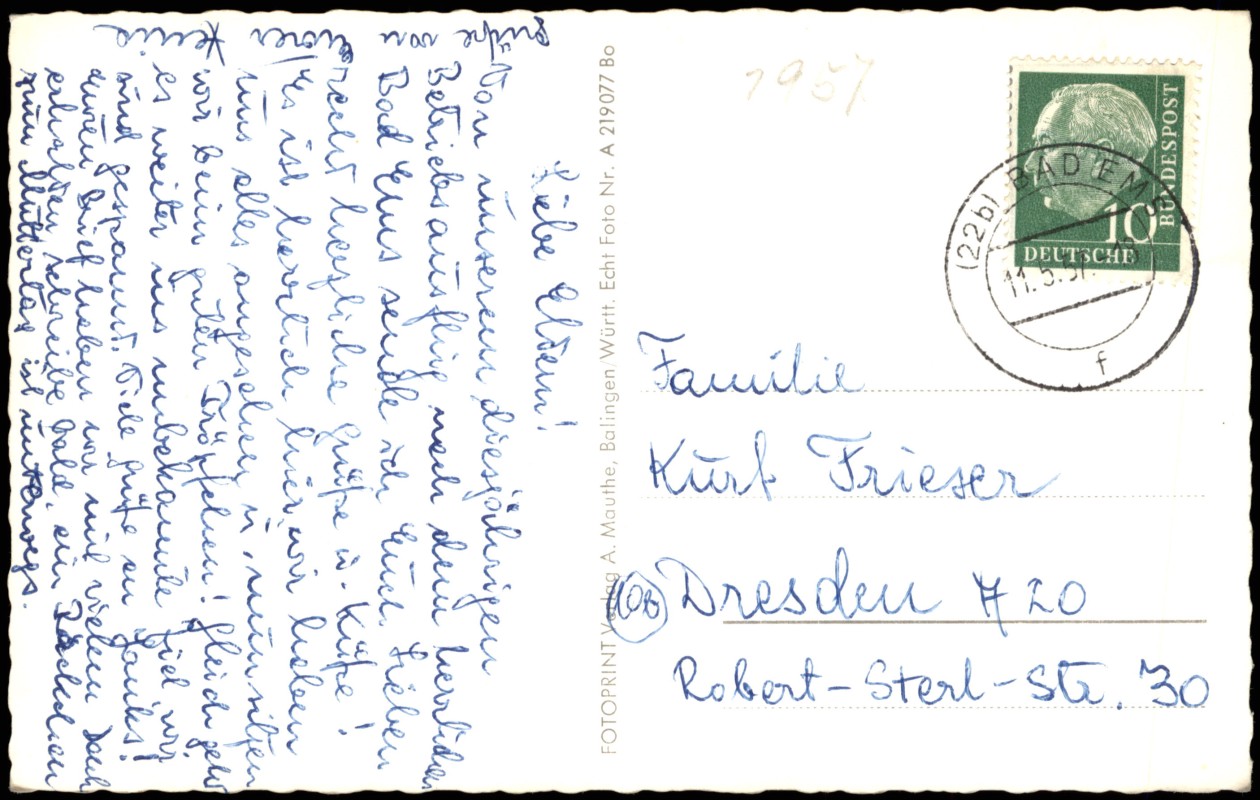 Liebe Eltern!
Von unserem diesjährigen
Betriebsausflug nach dem herrlichen
Bad Ems sende ich Euch Lieben
recht herzliche Grüße u. Küße!
Es ist herrlich hier, wir haben
uns alles angesehen u. nun sitzen
wir beim guten Tröpfchen! Gleich geht
es weiter ins unbekannte Ziel, wir
sind gespannt. Viele Grüße an
Euren Brief haben wir mit vielem Dank
erhalten, schreibe bald, ein Päckchen
zum Muttertag ist unterwegs.
Grüße von
FOTOPRINT Verlag A. Mauthe, Balingen/Württ. Echt Foto Nr. A 219077 Bo
1957
DEUTSCHE
BUNDESPOST
10
(22b) BAD EMS
11.5.57.-18
f
Familie
Kurt Frieser
(10b) Dresden A 20
Robert-Sterl-Str. 30